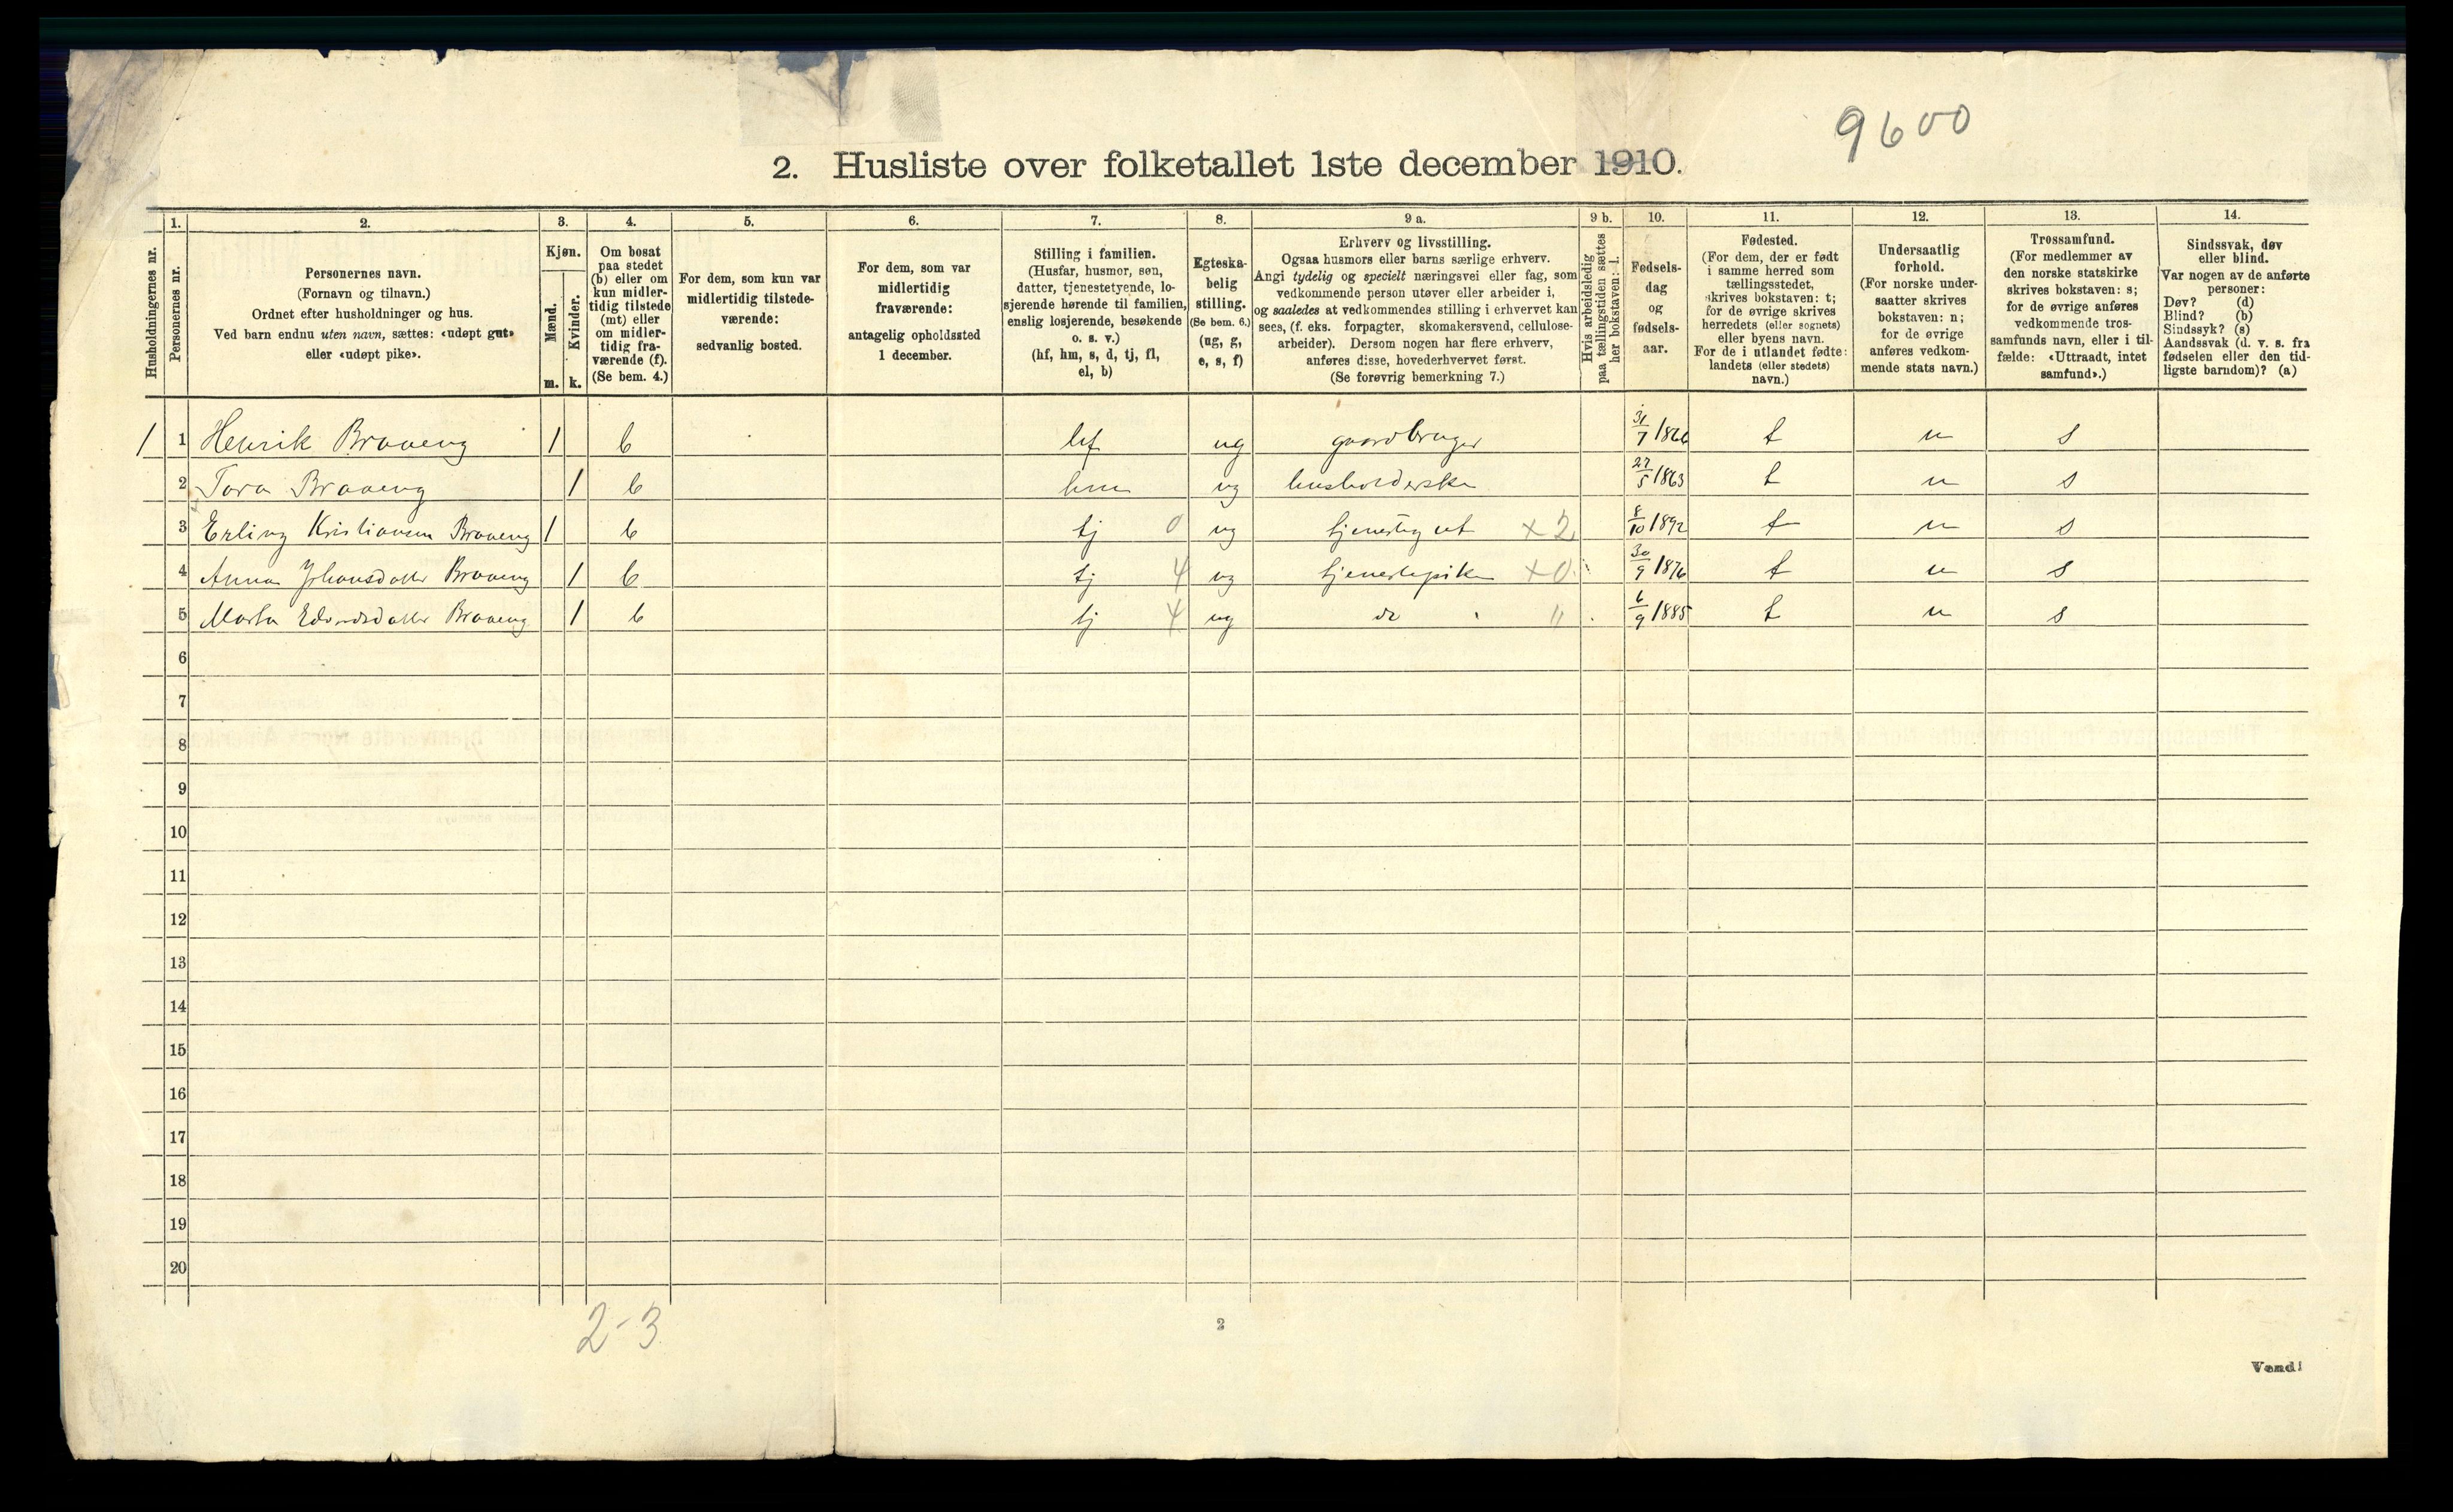 9600
2. Husliste over folketallet 1ste december 1910.
Husholdningernes nr.
1.
Personernes nr.
2.
Personernes navn.
(Fornavn og tilnavn.)
Ordnet efter husholdninger og hus.
Ved barn endnu uten navn, sættes: «udøpt gut»
eller «udøpt pike».
3.
Kjøn.
Mænd.
m.
Kvinder.
k.
4.
Om bosat
paa stedet
(b) eller om
kun midler-
tidig tilstede
(mt) eller
om midler-
tidig fra-
værende (f).
(Se bem. 4.)
5.
For dem, som kun var
midlertidig tilstede-
værende:
sedvanlig bosted.
6.
For dem, som var
midlertidig
fraværende:
antagelig opholdssted
1 december.
7.
Stilling i familien.
(Husfar, husmor, søn,
datter, tjenestetyende, lo-
sjerende hørende til familien,
enslig losjerende, besøkende
o. s. v.)
(hf, hm, s, d, tj, fl,
el, b)
8.
Egteska-
belig
stilling.
(Se bem. 6.)
(ug, g,
e, s, f)
9 a.
Erhverv og livsstilling.
Ogsaa husmors eller barns særlige erhverv.
Angi tydelig og specielt næringsvei eller fag, som
vedkommende person utøver eller arbeider i,
og saaledes at vedkommendes stilling i erhvervet kan
sees, (f. eks. forpagter, skomakersvend, cellulose-
arbeider). Dersom nogen har flere erhverv,
anføres disse, hovederhvervet først.
(Se forøvrig bemerkning 7.)
9 b.
Hvis arbeidsledig
paa tællingstiden sættes
her bokstaven: l.
10.
Fødsels-
dag
og
fødsels-
aar.
11.
Fødested.
(For dem, der er født
i samme herred som
tællingsstedet,
skrives bokstaven: t;
for de øvrige skrives
herredets (eller sognets)
eller byens navn.
For de i utlandet fødte:
landets (eller stedets)
navn.)
12.
Undersaatlig
forhold.
(For norske under-
saatter skrives
bokstaven: n;
for de øvrige
anføres vedkom-
mende stats navn.)
13.
Trossamfund.
(For medlemmer av
den norske statskirke
skrives bokstaven: s;
for de øvrige anføres
vedkommende tros-
samfunds navn, eller i til-
fælde: «Uttraadt, intet
samfund».)
14.
Sindssvak, døv
eller blind.
Var nogen av de anførte
personer:
Døv? (d)
Blind? (b)
Sindssyk? (s)
Aandssvak (d. v. s. fra
fødselen eller den tid-
ligste barndom)? (a)
1 1 Henrik Braaeng 1 b hf ug gaardbruger 31/7 1866 t n s
2 Tora Braaeng 1 b hm ug husholderske 27/5 1863 t n s
3 Erling Kristiansen Braaeng 1 b tj 0 ug tjenestegut x 2 8/10 1892 t n s
4 Anna Johansdatter Braaeng 1 b tj 4 ug tjenestepike x 0 30/9 1876 t n s
5 Marta Edvardsdatter Braaeng 1 b tj 4 ug do " 6/9 1885 t n s
6
7
8
9
10
11
12
13
14
15
16
17
18
19
20
2-3
2
Vend!